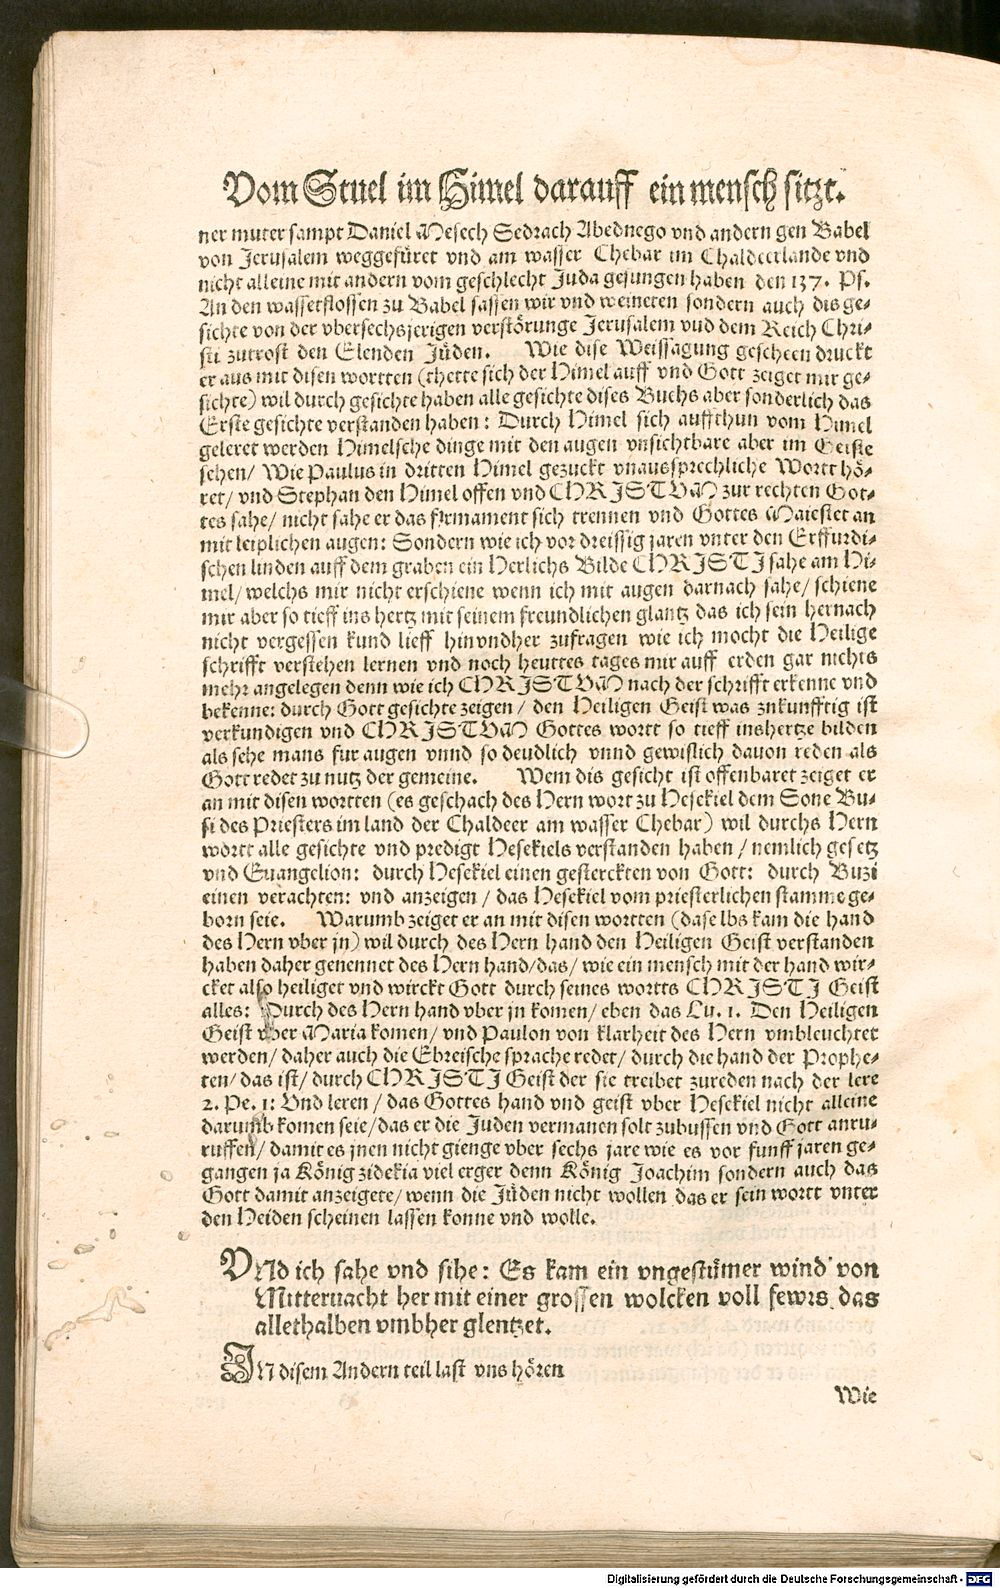 Vom Stuel im Himel darauff ein mensch sitzt.
ner muter sampt Daniel Mesech Sedrach Abednego vnd andern gen Babel
von Jerusalem weggefüret vnd am wasser Chebar im Chaldeerlande vnd
nicht alleine mit andern vom geschlecht Juda gesungen haben den 137. Ps.
An den wasserflossen zu Babel sassen wir vnd weineten sondern auch dis ge-
sichte von der vbersechsjerigen verstörunge Jerusalem vnd dem Reich Chri-
sti zutrost den Elenden Jüden. Wie dise Weissagung gescheen druckt
er aus mit disen wortten (thette sich der Himel auff vnd Gott zeiget mir ge-
sichte) wil durch gesichte haben alle gesichte dises Buchs aber sonderlich das
Erste gesichte verstanden haben: Durch Himel sich auffthun vom Himel
geleret werden Himelsche dinge mit den augen vnsichtbare aber im Geiste
sehen/ Wie Paulus in dritten Himel gezuckt vnaussprechliche Wortt hö-
ret/ vnd Stephan den Himel offen vnd CHRISTVM zur rechten Got-
tes sahe/ nicht sahe er das firmament sich trennen vnd Gottes Maiestet an
mit leiplichen augen: Sondern wie ich vor dreissig jaren vnter den Erffurdi-
schen linden auff dem graben ein Herlichs Bilde CHRISTI sahe am Hi-
mel/ welchs mir nicht erschiene wenn ich mit augen darnach sahe/ schiene
mir aber so tieff ins hertz mit seinem freundlichen glantz das ich sein hernach
nicht vergessen kund lieff hinvndher zufragen wie ich mocht die Heilige
schrifft verstehen lernen vnd noch heuttes tages mir auff erden gar nichts
mehr angelegen denn wie ich CHRISTVM nach der schrifft erkenne vnd
bekenne: durch Gott gesichte zeigen/ den Heiligen Geist was znkunfftig ist
verkundigen vnd CHRISTVM Gottes wortt so tieff inshertze bilden
als sehe mans fur augen vnnd so deudlich vnnd gewislich davon reden als
Gott redet zu nutz der gemeine. Wem dis gesicht ist offenbaret zeiget er
an mit disen wortten (es geschach des Hern wort zu Hesekiel dem Sone Bu-
si des Priesters im land der Chaldeer am wasser Chebar) wil durchs Hern
wortt alle gesichte vnd predigt Hesekiels verstanden haben/ nemlich gesetz
vnd Euangelion: durch Hesekiel einen gesterckten von Gott: durch Buzi
einen verachten: vnd anzeigen/ das Hesekiel vom priesterlichen stamme ge-
born seie. Warumb zeiget er an mit disen wortten (daselbs kam die hand
des Hern vber jn) wil durch des Hern hand den Heiligen Geist verstanden
haben daher genennet des Hern hand/das/ wie ein mensch mit der hand wir-
cket also heiliget vnd wirckt Gott durch seines wortts CHRISTI Geist
alles: Durch des Hern hand vber jn komen/ eben das Lu. 1. Den Heiligen
Geist vber Maria komen/ vnd Paulon von klarheit des Hern vmbleuchtet
werden/ daher auch die Ebreische sprache redet/ durch die hand der Prophe-
ten/ das ist/ durch CHRISTI Geist der sie treibet zureden nach der lere
2. Pe. 1: Vnd leren/ das Gottes hand vnd geist vber Hesekiel nicht alleine
darumb komen seie/das er die Juden vermanen solt zubussen vnd Gott anru-
ruffen/ damit es jnen nicht gienge vber sechs jare wie es vor funff jaren ge-
gangen ja König zidekia viel erger denn König Joachim sondern auch das
Gott damit anzeigete/ wenn die Jüden nicht wollen das er sein wortt vnter
den Heiden scheinen lassen konne vnd wolle.
VNd ich sahe vnd sihe: Es kam ein vngestümer wind von
Mitternacht her mit einer grossen wolcken voll fewrs das
allethalben vmbher glentzet.
IN disem Andern teil last vns hören
Wie
Digitalisierung gefördert durch die Deutsche Forschungsgemeinschaft - DFG